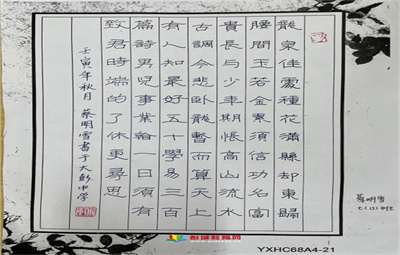 龍泉佳處種花滿縣却東歸
腰間玉若金累須信功名富
貴長与少年期悵高山流水
古調今悲臥龍暫而算天上
有人知最好五十學易三百
篇詩男児事業看一日須有
致君時端的了休更尋思
壬寅年秋月 蔡明雪書于大彭中学
蔡明雪
YXHC68A4-21